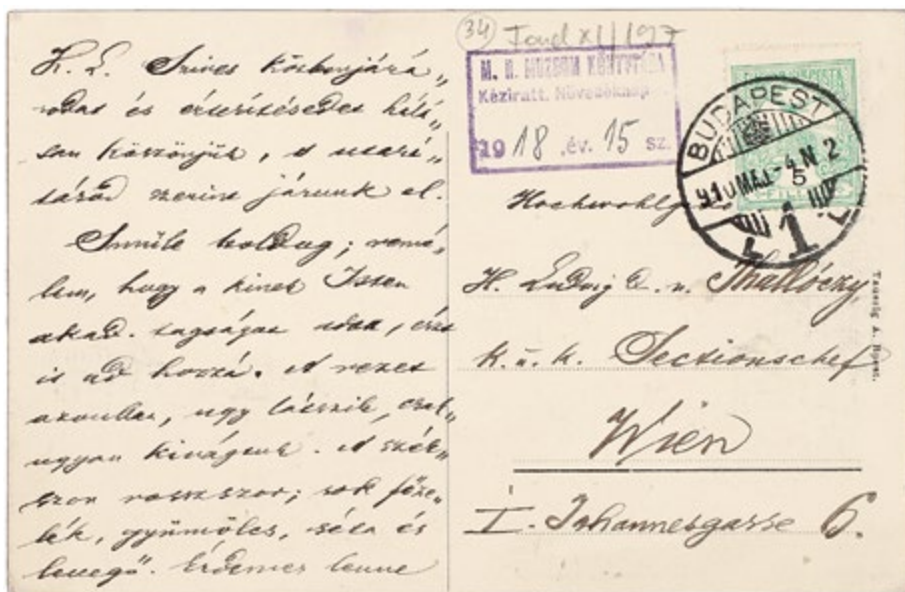 K. L. Szives közbenjárá„
sodat és értesítésedet hálá„
san köszönjük, a utasí„
tásod szerint járunk el.
Snnüle boldog; remé„
lem, hogy a kinek Isten
akad. tagságot adta, észt
is ad hozzá. A rezet
azonban, ugy látszik, csak„
ugyan kivágenk. A szék„
szor rosszszor; sok főze„
lék, gyümölcs, séta és
levegő. Érdemes lenne
34 Fond XI/197
M. N. MUZEUM KÖNYVTÁRA
Kéziratt. Növedéknapló
1918 .év. 15 sz.
BUDAPEST
910 MÁJ. -4. N 2
5
1
Hochwohlg
H. Ludwig D. v. Thallóczy,
k. u. k. Sectionschef
Wien
I. Johannesgasse 6.
Taussig A. Bpest.